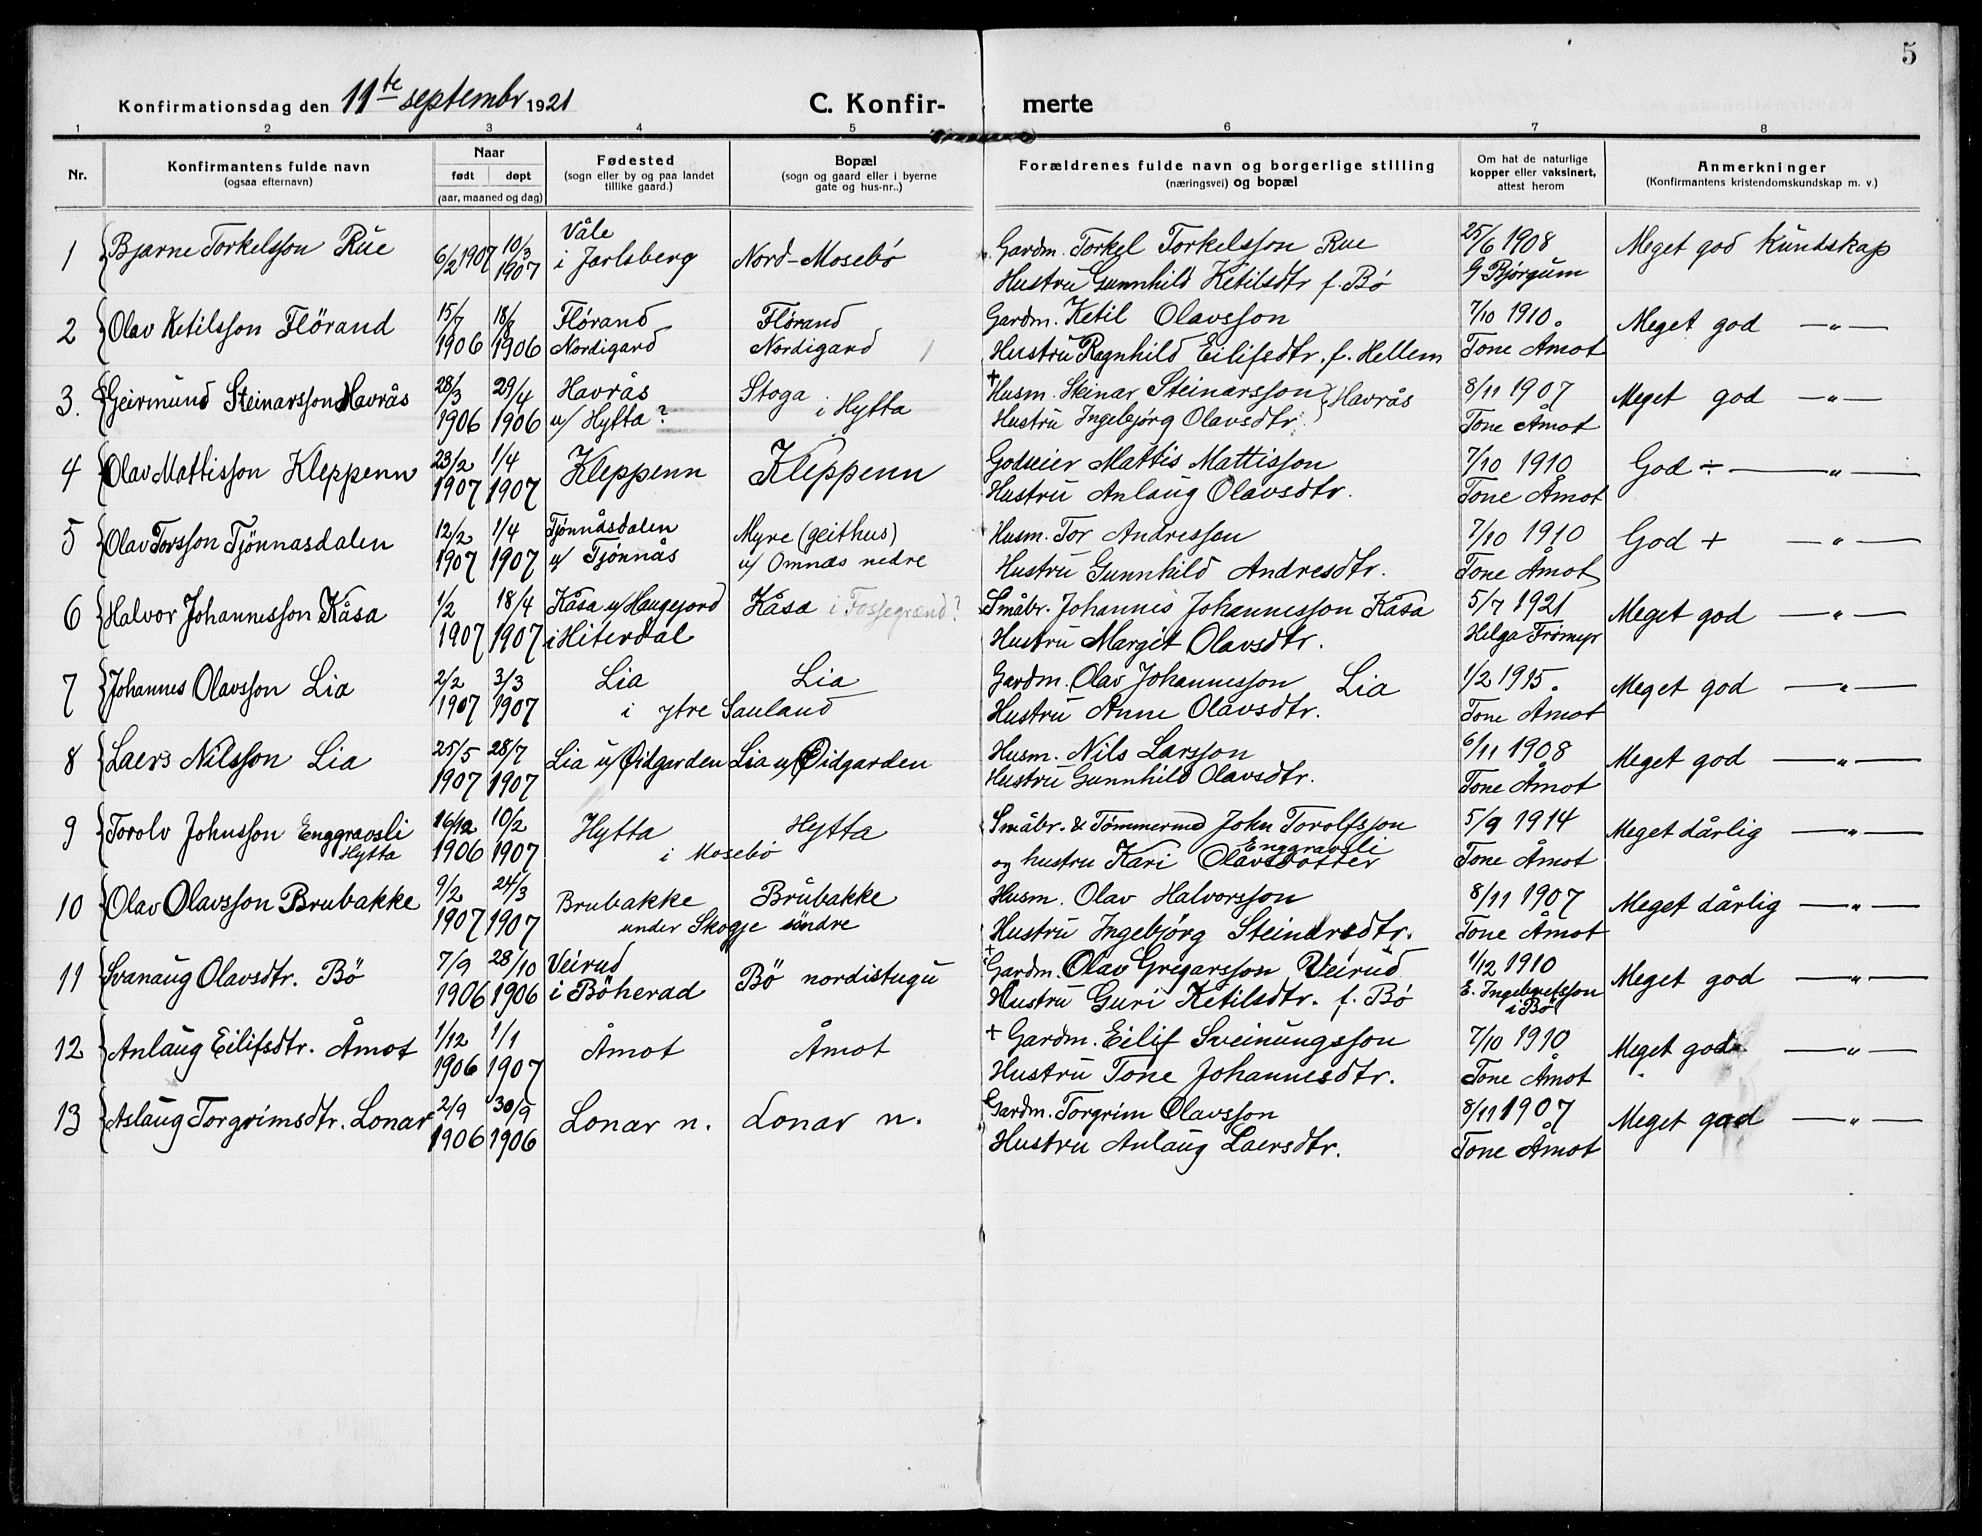 5
Konfirmationsdag den 11te septembr 1921
C. Konfir- merte
1 2 3 4 5 6 7 8
Nr.
Konfirmantens fulde navn
(ogsaa efternavn)
Naar
født døpt
(aar, maaned og dag)
Fødested
(sogn eller by og paa landet
tillike gaard.)
Bopæl
(sogn og gaard eller i byerne
gate og hus-nr..)
Forældrenes fulde navn og borgerlige stilling
(næringsvei) og bopæl
Om hat de naturlige
kopper eller vaksinert,
attest herom
Anmerkninger
(Konfirmantens kristendomskundskap m. v.)
1 Bjarne Torkelsson Rue 6/2 1907 10/3 1907 Våle i Jarlsberg Nord-Mosebø Gardm. Torkel Torkelsson Rue 25/6 1908 Meget god Kundskap
Hustru Gunnhild Ketilsdtr f. Bø G Bjørgum
2 Olav Ketilsson Flörand 15/7 18/8 Flórand Flórand Gardm. Ketil Olavsson 7/10 1910 Meget god —"—
1906 1906 Nordigard Nordigard Hustru Ragnhild Eilifsdtr. f. Hellem Tone Åmot
3. Geirmund Steinarsson Havrås 28/3 29/4 Havrås Stoga i Hytta + Husm. Steinar Steinarsson Havrås 8/11 1907 Meget god —"—
1906 1906 u/ Hytta? Hustru Ingebjørg Olavsdtr. Tone Åmot
4 Olav Mattisson Kleppenn 23/2 1/4 Kleppenn Kleppenn Godseier Mattis Mattisson 7/10 1910 God ÷ —"—
1907 1907 Hustru Anlaug Olavsdtr. Tone Åmot
5 Olav Torsson Tjönnasdalen 12/2 1/4 Tjønnåsdalen Myre (geithus) Husm. Tor Andresson 7/10 1910 God + —"—
1907 1907 u/ Tjønnås u/ Omnæs nedre Hustru Gunnhild Andresdtr. Tone Åmot
6 Halvor Johannesson Kåsa 1/2 18/4 Kåsa u/ Haugejord Kåsa i Fossegrænd? Småbr. Johannis Johannesson Kåsa 5/7 1921 Meget god —"—
1907 1907 i Hiterdal Hustru Margit Olavsdtr. Helga Frömyr
7 Johannes Olavsson Lia 2/2 3/3 Lia Lia Gardm. Olav Johannesson Lia 1/2 1915 Meget god —"—
1907 1907 i ytre Sauland Hustru Anne Olavsdtr. Tone Åmot
8 Laers Nilsson Lia 25/5 28/7 Lia u/ Øidgarden Lia u/ Øidgarden Husm. Nils Larsson 6/11 1908 Meget god —"—
1907 1907 Hustru Gunnhild Olavsdtr. Tone Åmot
9 Torolv Johnsson Enggravsli 16/12 10/2 Hytta Hytta Småbr. & Tömmermd John Torolfsson 5/9 1914 Meget dårlig —"—
Hytta 1906 1907 i Mosebø og hustru Kari Olavsdotter Enggravsli Tone Åmot
10 Olav Olavsson Brubakke 9/2 24/3 Brubakke Brubakke Husm. Olav Halvorsson 8/11 1907 Meget dårlig —"—
1907 1907 under Skogje söndre Hustru Ingebjørg Steindrsdtr. Tone Åmot
11 Svanaug Olavsdtr. Bö 7/9 28/10 Veirud Bö nordistugu + Gardm. Olav Gregarsson Veirud 1/12 1910 Meget god —"—
1906 1906 i Böherad Hustru Guri Ketilsdtr. f. Bø E. Ingebretsson
i Bø
12 Anlaug Eilifsdtr. Åmot 1/12 1/1 Åmot Åmot + Gardm. Eilif Sveinungsson 7/10 1910 Meget god —"—
1906 1907 Hustru Tone Johannesdtr. Tone Åmot
13 Aslaug Torgrimsdtr. Lonar 2/9 30/9 Lonar n. Lonar n. Gardm. Torgrim Olavsson 8/11 1907 Meget god —"—
1906 1906 Hustru Anlaug Laersdtr. Tone Åmot